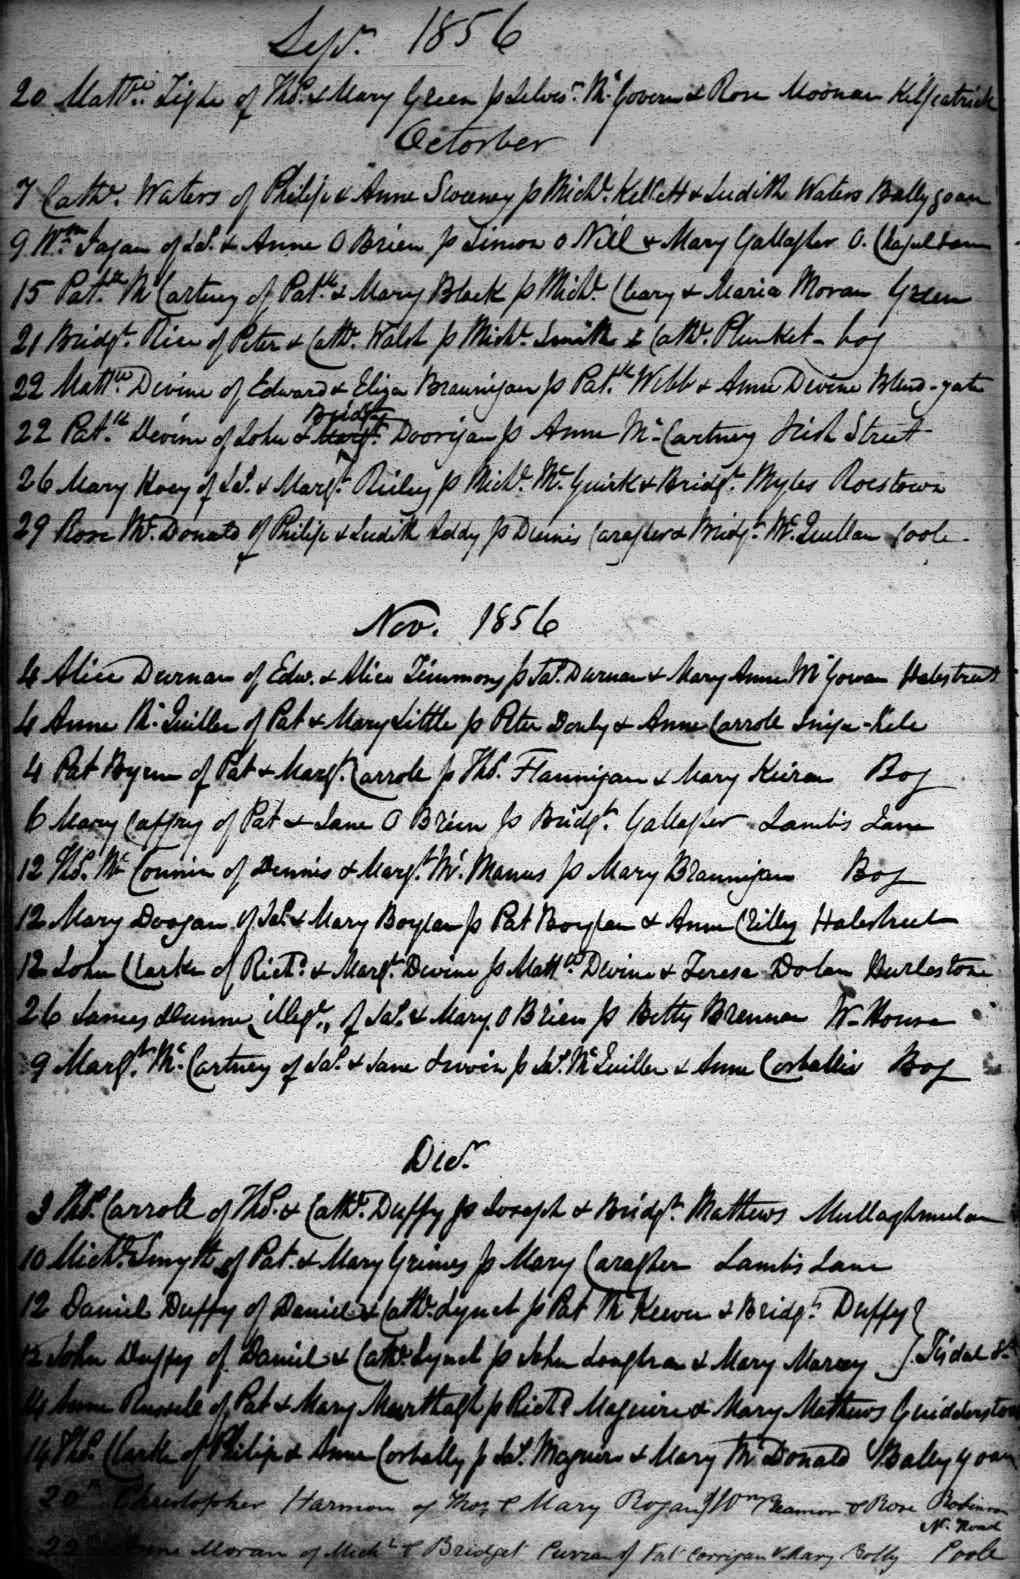 Sepr. 1856
20 Matthw. Tighe of Thos. & Mary Green ps Silvesr. McGovern & Rose Moonan Kilpatrick
October
7 Cathe. Waters of Philip & Anne Sweeney ps Michl. Kellett & Judith Waters Ballygoan
9 Wm. Fagan of Js. & Anne O Brien ps Simon O Nill & Mary Gallagher O. Chapel Lane
15 Patk. McCartney of Patk. & Mary Black ps Michl. Cleary & Maria Moran Green
21 Bridgt. Rice of Peter & Cathe. Walsh ps Michl. Smith & Cathe. Plunket - bog
22 Matthw. Devine of Edward & Eliza Brannigan ps Patk. Webb & Anne Devine Blind-gate
Bridgt.
22 Patk. Devine of John & Margt. Doorigan ps Anne McCartney Irish Street
26 Mary Hoey of Js. & Margt. Reiley ps Michl. McGuirk & Bridgt. Myles Roestown
29 Rose McDonald of Philip & Judith Addy ps Dennis Caragher & Bridgt. McQuillan Coole -
Nov. 1856
4 Alice Durnan of Edw. & Alice Timmons ps Js. Durnan & Mary Anne McGowan Halestreet
4 Anne McQuillen of Pat & Mary Little ps Peter Donly & Anne Carroll
4 Pat Byrne of Pat & Margt. Carroll ps Thos. Flannigan & Mary Kieran Bog
6 Mary Caffry of Pat & Jane O Brien ps Bridgt. Gallagher Lambs Lane
12 Thos. Mc of Dennis & Margt. McManus ps Mary Brannigan Bog
12 Mary Doogan of Js. & Mary Boylan ps Pat Boylan & Anne Crilly Halestreet
12 John Clarke of Richd. & Margt. Devine ps Matthw. Devine & Teresa Dolan Hurlestone
26 James Dunne, illegt., of Js. & Mary O Brien ps Betty Brennan W-House
9 Margt. McCartney of Js. & Jane Irwin ps Js. McQuillen & Anne Corballis Bog
Decr.
3 Thos. Carroll of Thos. & Cathe. Duffy ps Joseph & Bridgt. Mathews
10 Michl. Smyth of Pat. & Mary Grimes ps Mary Caragher Lambs Lane
12 Daniel Duffy of Daniel & Cathe. Lynch ps Pat McKeever & Bridgt. Duffy }
12 John Duffy of Daniel & Cathe. Lynch ps John Loughran & Mary } Tisdal St.
14 Anne Russell of Pat & Mary Murttagh ps Richd. Maguire & Mary Mathews Guidderstown
14 Thos. Clarke of Philip & Anne Corbally ps Js. Maguire & Mary McDonald Ballygoan
20th Christopher Harmon of Thos & Mary Rogan & Rose Robinson
N. Road
22 Anne Moran of Michl & Bridget Curran Pat Corrigan & Mary Poole